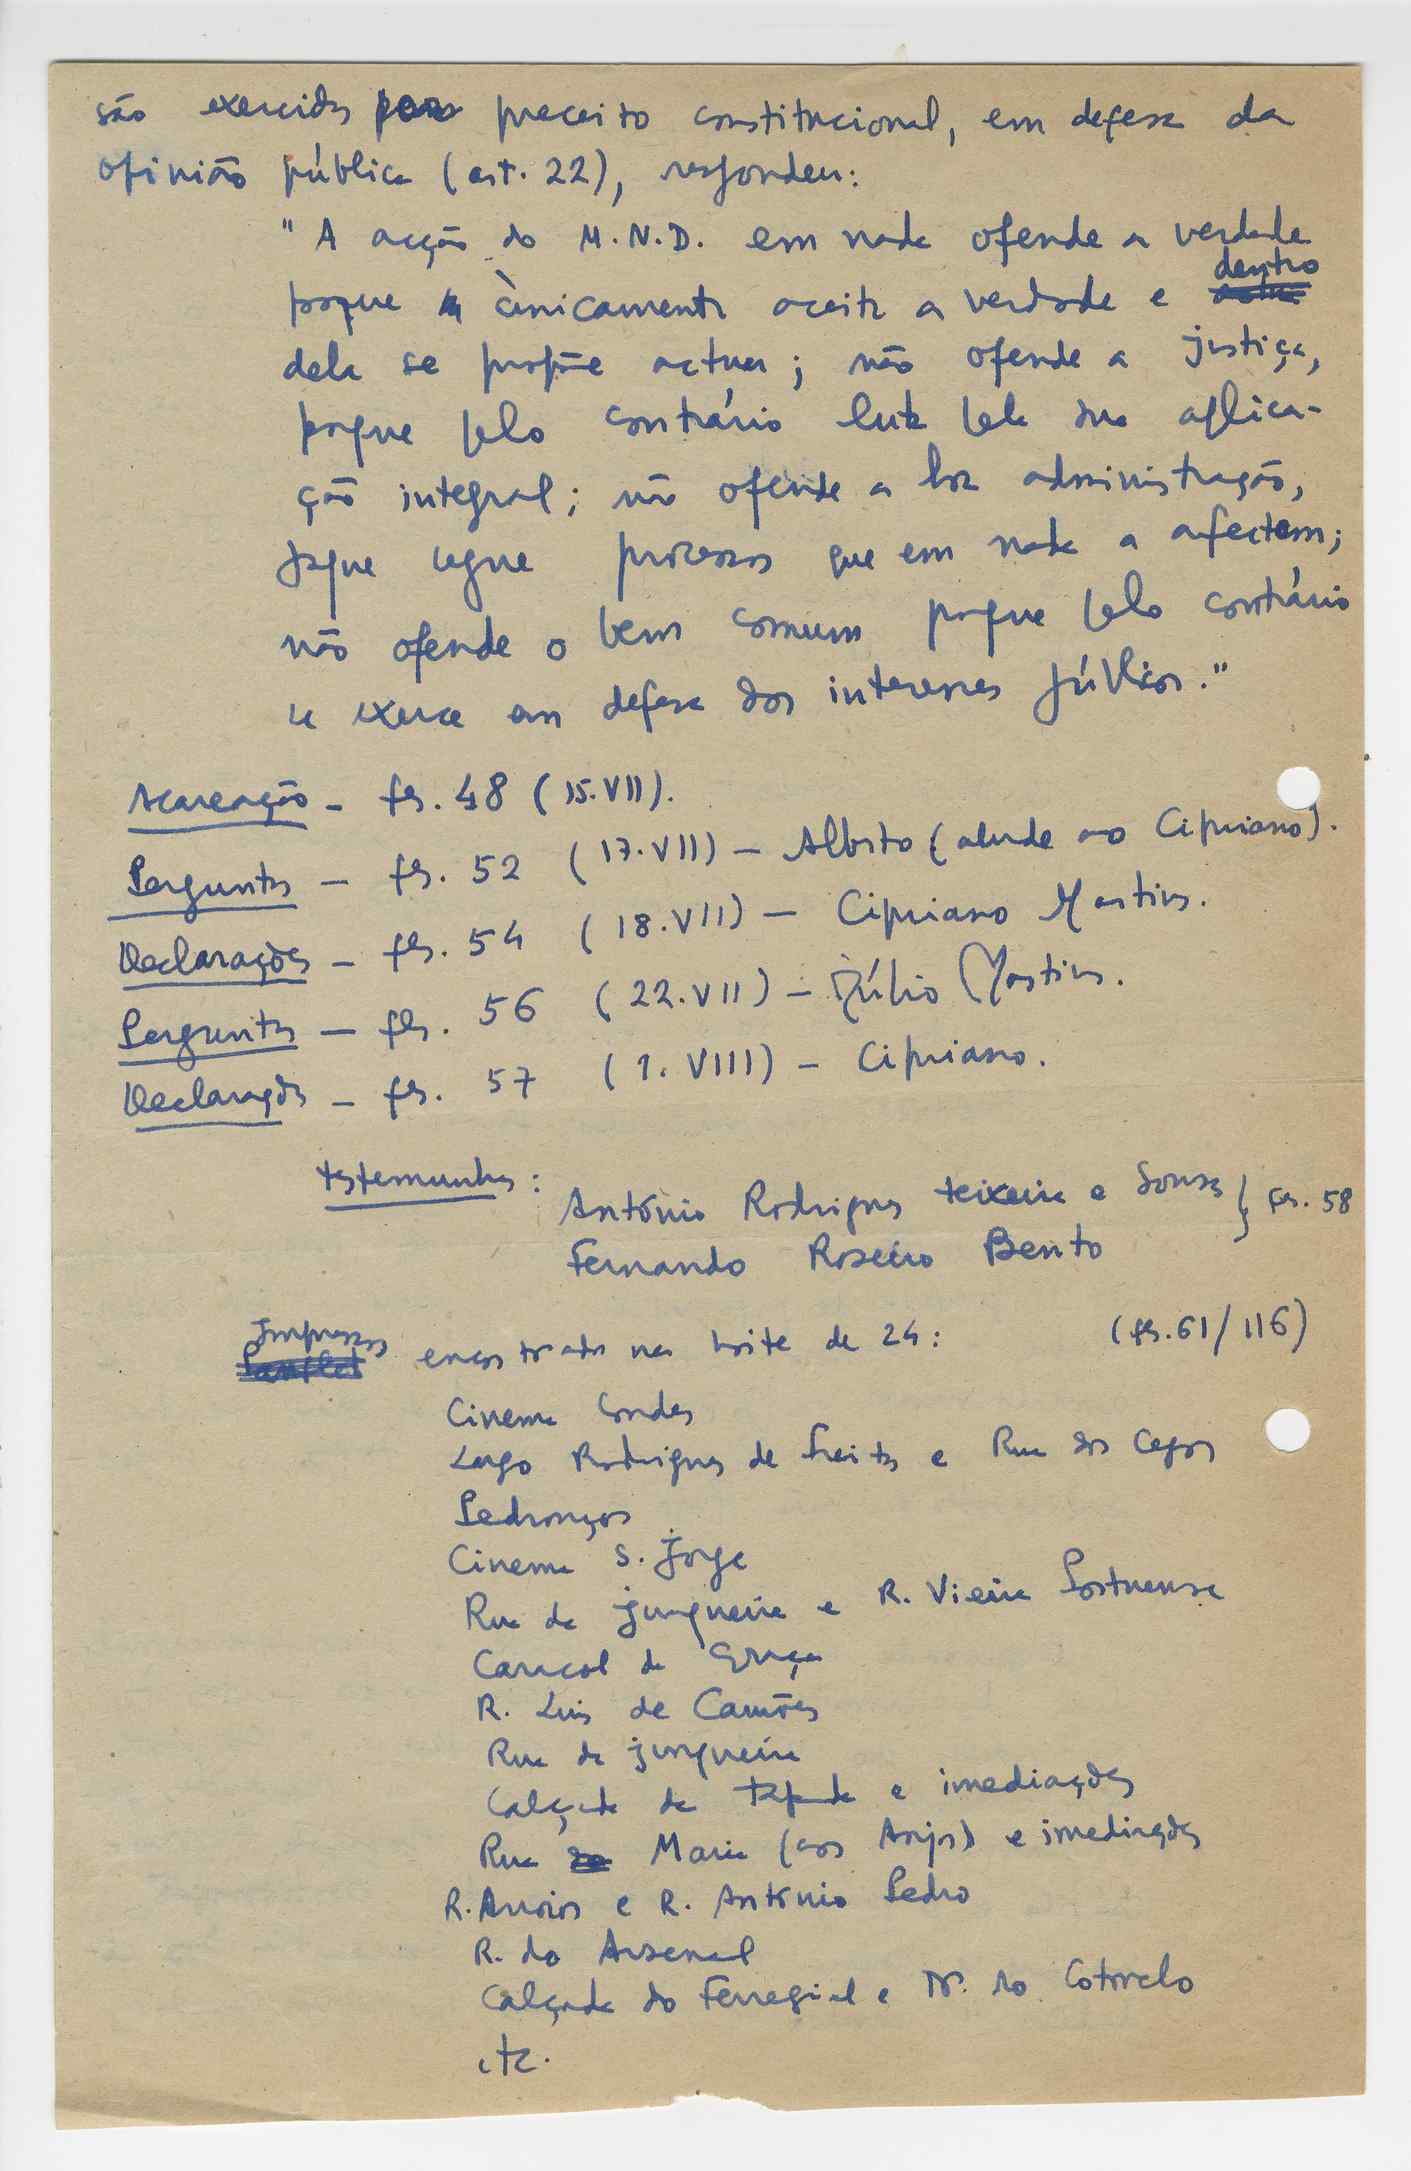 são exercidos por preceito constitucional, em defesa da
opinião pública (art. 22), respondeu:
"A acção do M.N.D. em nada ofende a verdade
porque ùnicamente aceita a verdade e dentro
dela se propõe actuar; não ofende a justiça,
porque pelo contrário luta pela sua aplica-
ção integral; não ofende a boa administração,
porque segue processos que em nada a afectam;
não ofende o bem comum porque pelo contrário
se exerce em defesa dos interesses públicos."
Acareação - fls. 48 (15.VII).
Perguntas - fls. 52 (17.VII) - Alberto (alude ao Cipriano).
Declarações - fls. 54 (18.VII) - Cipriano Martins.
Perguntas - fls. 56 (22.VII) - Júlio Martins.
Declarações - fls. 57 (1.VIII) - Cipriano.
testemunhas:
António Rodrigues Teixeira e Sousa } fls. 58
Fernando Roseiro Bento
Impressos encontrados na noite de 24: (fls. 61/116)
Cinema Condes
Largo Rodrigues de Freitas e Rua dos Cegos
Pedrouços
Cinema S. Jorge
Rua da Junqueira e R. Vieira Portuense
Caracol da Graça
R. Luis de Camões
Rua da Junqueira
Calçada da Tapada e imediações
Rua Maria (aos Anjos) e imediações
R. Arroios e R. António Pedro
R. do Arsenal
Calçada do Ferregial e do Cotovelo
etc.